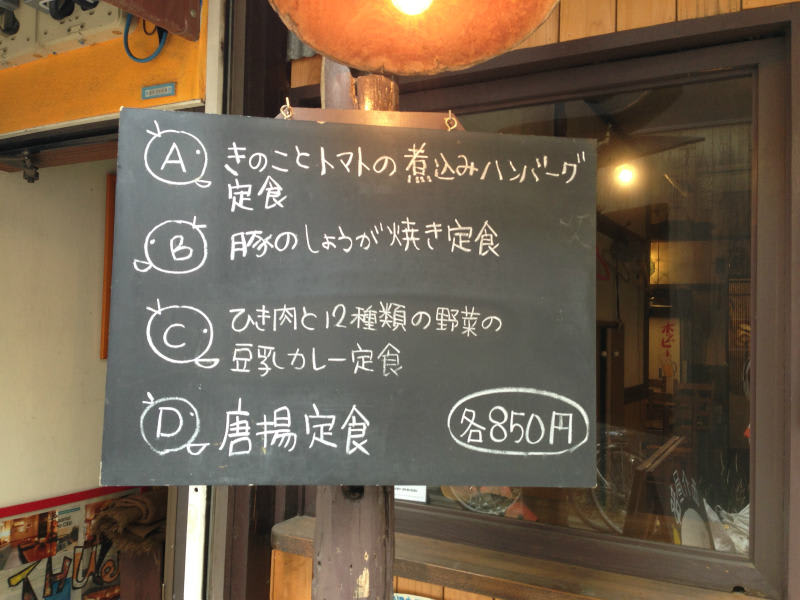 A きのことトマトの煮込みハンバーグ
定食
B 豚のしょうが焼き定食
C ひき肉と12種類の野菜の
豆乳カレー定食
D 唐揚定食
各850円
ホッピー